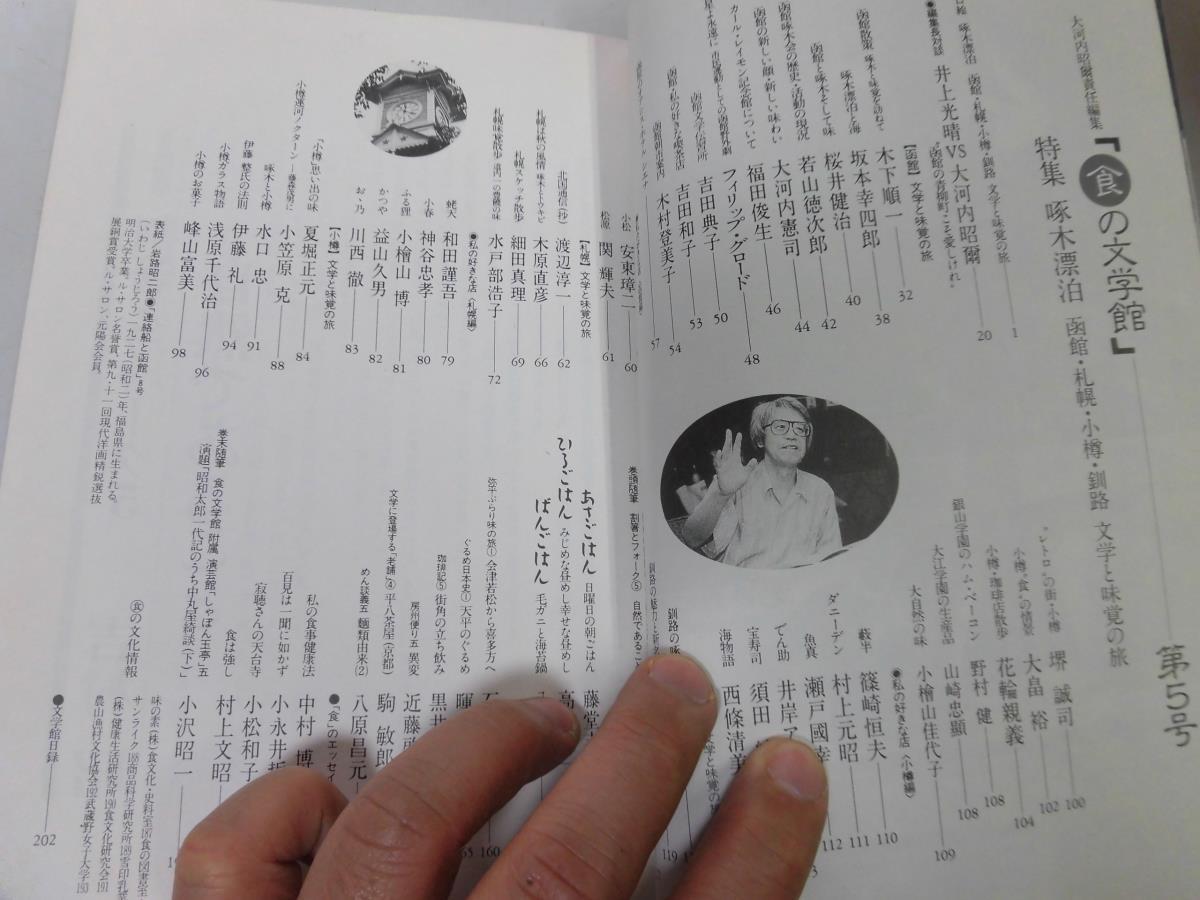 大河内昭爾責任編集
『食の文学館』
第5号
特集 啄木漂泊 函館・札幌・小樽・釧路 文学と味覚の旅
啄木漂泊 函館・札幌・小樽・釧路 文学と味覚の旅 1
●編集長対談 井上光晴VS大河内昭爾 20
函館の青柳町こそ愛しけれ
【函館】文学と味覚の旅
函館散策 啄木と味覚を訪ねて 木下順一 32
啄木漂泊と海 坂本幸四郎 38
函館と啄木そして味 桜井健治 40
函館啄木会の歴史・活動の現況 若山徳次郎 42
函館の新しい顔・新しい味わい 大河内憲司 44
カール・レイモン記念館について 福田俊生 46
星よ永遠に 市民運動としての函館野外劇 フィリップ・グロード 48
函館・私の好きな喫茶店 吉田典子 50
函館文学伝習所 吉田和子 53
函館朝市案内 木村登美子 54
57
小松 安東璋二 60
松原 関輝夫 61
【札幌】文学と味覚の旅
北国通信(抄) 渡辺淳一 62
札幌は秋の風情 啄木とトウキビ 木原直彦 66
札幌スケッチ散歩 細田真理 69
札幌味覚散歩 薄れぬ一の蕾の味 水戸部浩子 72
●私の好きな店〈札幌編〉
蛯天 和田謹吾 79
小春 神谷忠孝 80
ふる狸 小檜山博 81
かつや 益山久男 82
お・乃 川西徹 83
【小樽】文学と味覚の旅
「小樽」思い出の味 夏堀正元 84
小樽運河ノクターン―藤森茂男に 小笠原克 88
啄木と小樽 水口忠 91
伊藤整氏の法則 伊藤礼 94
小樽ガラス物語 浅原千代治 96
小樽のお菓子 峰山富美 98
表紙/岩路昭二郎●「連絡船と函館」8号
(いわじ しょうじろう)一九二七(昭和二)年、福島県に生まれる。
明治大学卒業。ル・サロン名誉賞、第九・十一回現代洋画精鋭選抜
展銅賞受賞。ル・サロン、元陽会会員。
“レトロ”の街・小樽 堺誠司 100
小樽“食”の情景 大畠裕 102
小樽・珈琲店散歩 花輪親義 104
銀山学園のハム・ベーコン 野村健 108
大江学園の生産品 山崎忠顯 108
大自然の味 小檜山佳代子 109
●私の好きな店〈小樽編〉
藪半 篠崎恒夫 110
ダニーデン 村上元昭 111
魚真 瀬戸國幸 112
でん助 井岸ア
宝寿司 須田
海物語 西條清美
文学と味覚の旅
釧路の啄
釧路の魅力と新名
119
巻頭随筆 割箸とフォーク⑤ 自然であるこ
あさごはん 日曜日の朝ごはん 藤堂
ひるごはん みじめな昼めし幸せな昼めし 高
ばんごはん 毛ガニと海苔鍋
弥平ぶらり味の旅① 会津若松から喜多方へ 石
160
ぐるめ日本史① 天平のぐるめ 暉
珈琲記⑤ 街角の立ち飲み 黒井
房州便り五 異変 近藤啓
文学に登場する「老舗」④ 平八茶屋(京都) 駒敏郎
めん談義五 麺類由来(2) 八原昌元
●「食」のエッセイ
私の食事健康法 中村博
百見は一聞に如かず 小永井
寂聴さんの天台寺 小松和子
食は強し 村上文昭
巻末随筆 食の文学館 附属 演芸館「しゃぼん玉亭」五
演題「昭和太郎一代記のうち中丸屋綺談(下)」 小沢昭一
食の文化情報
味の素(株)食文化・史料室187食の図書室
サンライク188商品科学研究所189雪印乳業
(株)健康生活研究所190食文化研究会191
農山漁村文化協会192武蔵野女子大学193
●文学館日録 202